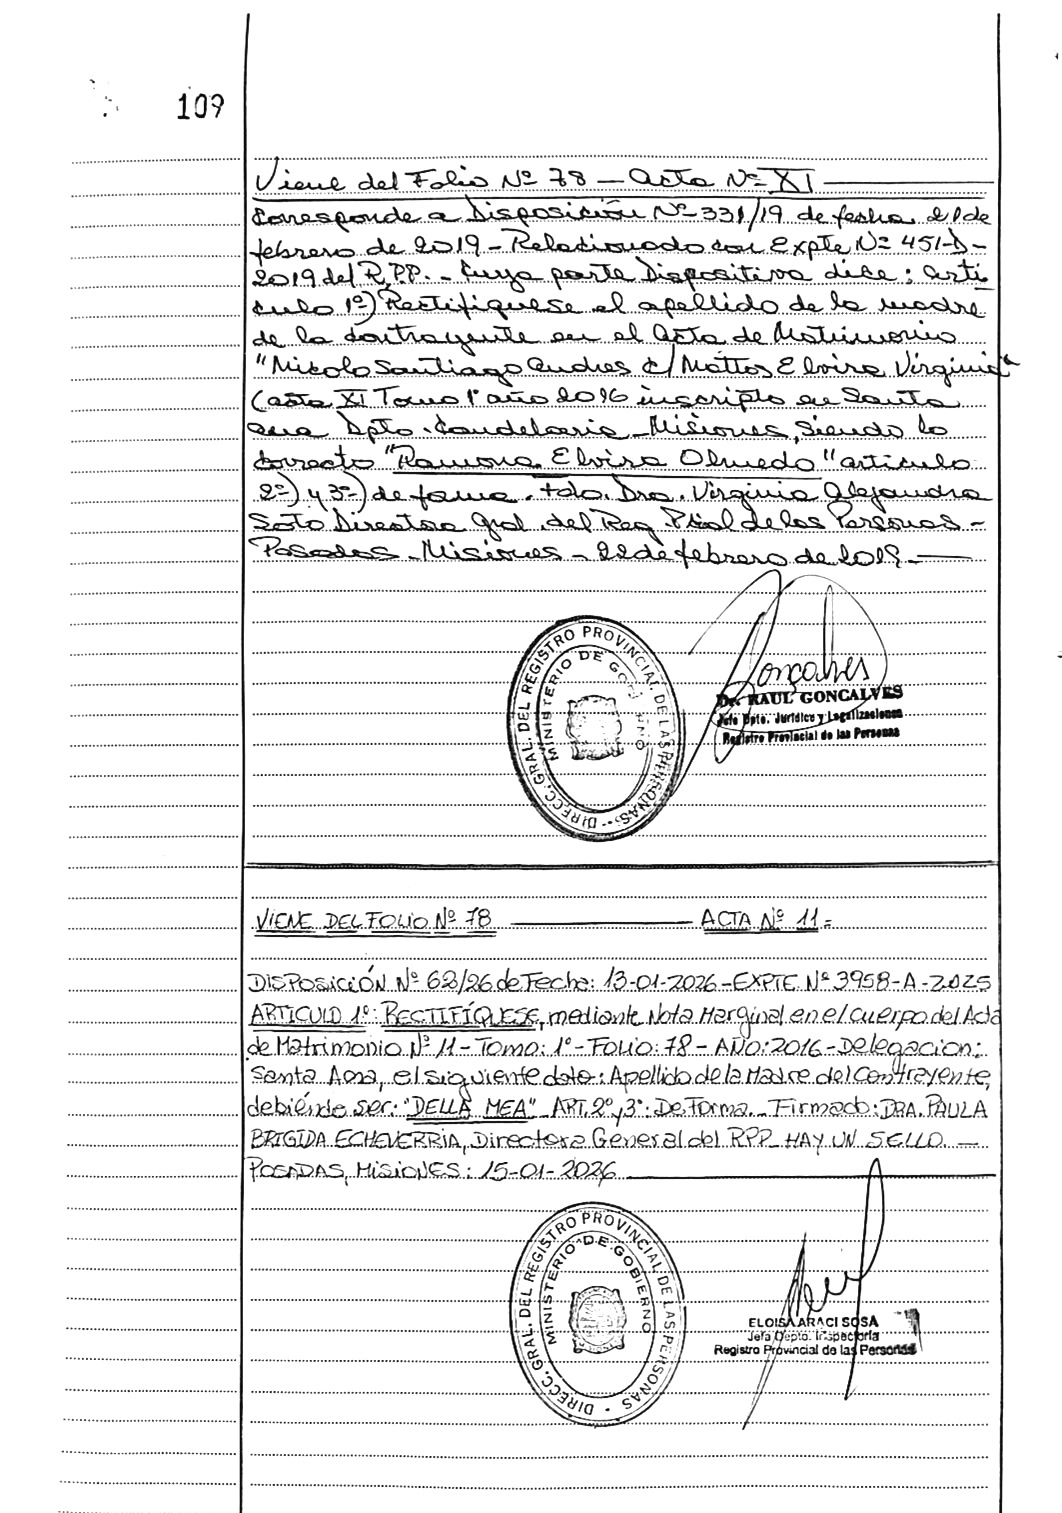 109
Viene del Folio Nº 78 — Acta Nº XI
Corresponde a Disposición Nº 331/19 de fecha 21 de
febrero de 2019 - Relacionado con Expte Nº 451-D-
2019 del R.P.P. - Cuya parte Dispositiva dice: Arti
culo 1º) Rectifiquese el apellido de la madre
de la contrayente en el Acta de Matrimonio
"Micolo Santiago Andres c/ Mattos Elvira Virginia"
(acta XI Tomo 1º año 2016 inscripto en Santa
Ana Dpto. Candelaria - Misiones, siendo lo
correcto "Ramona Elvira Olmedo" articulo
2º) y 3º) de forma. Fdo. Dra. Virginia Alejandra
Soto Directora Gral. del Reg. Pcial de las Personas -
Posadas - Misiones - 22 de febrero de 2019. —
DIRECC. GRAL. DEL REGISTRO PROVINCIAL DE LAS PERSONAS
MINISTERIO DE GOBIERNO
Goncalves
Dr. RAUL GONCALVES
Jefe Dpto. Jurídico y Legalizaciones
Registro Provincial de las Personas
VIENE DEL FOLIO Nº 78 — ACTA Nº 11=
DISPOSICIÓN Nº 68/26 de Fecha: 13-01-2026-EXPTE Nº 3958-A-2025
ARTICULO 1º: RECTIFÍQUESE, mediante Nota Marginal en el cuerpo del Acta
de Matrimonio Nº 11-Tomo: 1º-Folio: 78-AÑO: 2016-Delegacion:
Santa Ana, el siguiente dato: Apellido de la Madre del Contrayente,
debiéndo ser: "DELLA MEA" ART. 2º y 3º: De Forma. Firmado: DRA. PAULA
BRIGIDA ECHEVERRIA, Directora General del RPP. HAY UN SELLO —
POSADAS, MISIONES: 15-01-2026
DIRECC. GRAL. DEL REGISTRO PROVINCIAL DE LAS PERSONAS
MINISTERIO DE GOBIERNO
ELOISA ARACI SOSA
Jefa Depto. Inspectoría
Registro Provincial de las Personas